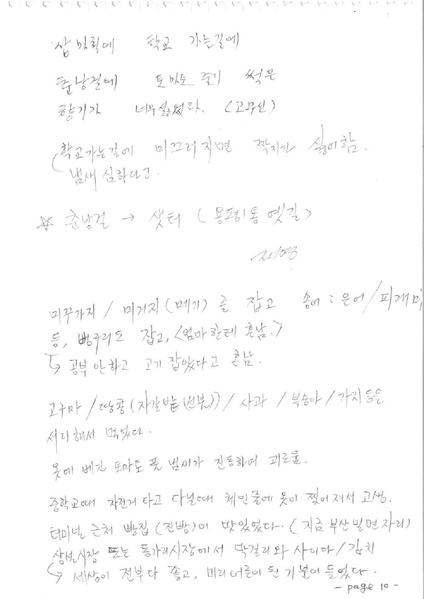 삼바희에 학교 가는길에
춘낭걸에 토마토 줄기 썩은
향기가 너무싫었다. (고무신)
(학교가는길에 미끄러지면 짝지가 싫어함.
냄새 심하다고.
☆ 춘낭걸 → 샛터 (용평리통 옛길)
미꾸가지 / 미거지(메기)를 잡고 송어: 은어/피래미
등, 빵구리도 잡고, <엄마한테 혼남.>
↳ 공부 안하고 고기 잡았다고 혼남.
고구마 / 땅콩 (자갈밭 (선불)) / 사과 / 복숭아 / 가지 등을
서리해서 먹었다.
옷에 베긴 토마토 풋 냄새가 진동하여 괴로움.
중학교때 자전거 타고 다닐때 체인줄에 옷이 찢어져서 고생.
터미널 근처 빵집 (찐빵)이 맛있었다.. (지금 부산밀면자리)
상설시장 또는 동가리시장에서 막걸리와 사이다/김치
↳ 세상이 전부다 좋고, 미리어른이 된 기분이 들었다.
- page 10 -